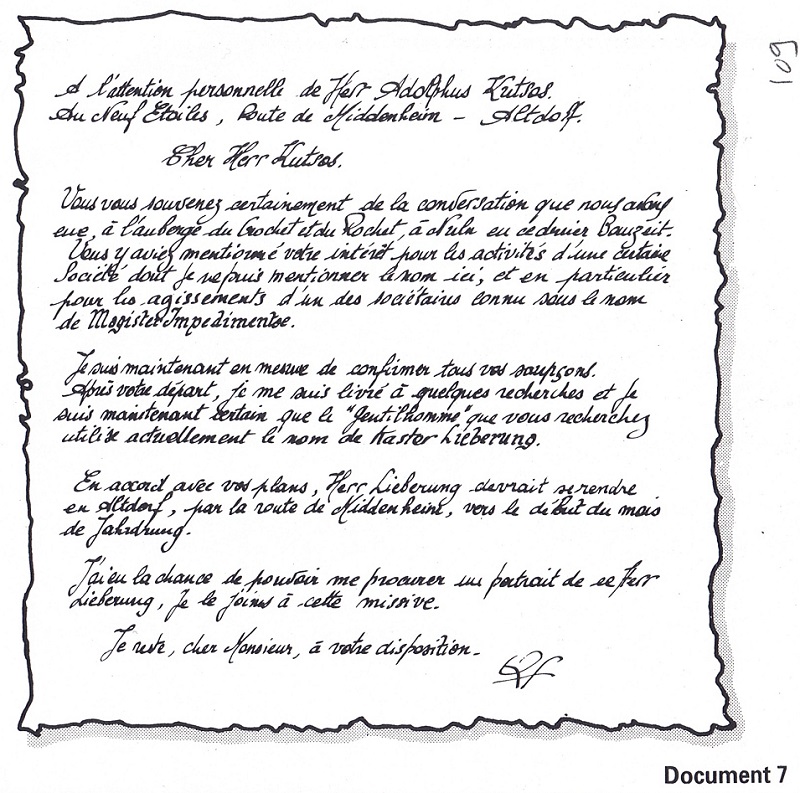 109
A l'attention personnelle de Herr Adolphus Kutsos.
Au Neuf Etoiles, Route de Middenheim - Altdorf.
Cher Herr Kutsos.
Vous vous souvenez certainement de la conversation que nous avons
eue, à l'auberge du Crochet et du Rochet, à Nuln en ce dernier Bauzeit.
Vous y aviez mentionné votre intérêt pour les activités d'une certaine
Société dont je ne puis mentionner le nom ici, et en particulier
pour les agissements d'un des sociétaires connu sous le nom
de Magister Impedimentae.
Je suis maintenant en mesure de confirmer tous vos soupçons.
Après votre départ, je me suis livré à quelques recherches et je
suis maintenant certain que le "gentilhomme" que vous recherchez
utilise actuellement le nom de Kastor Lieberung.
En accord avec vos plans, Herr Lieberung devrait se rendre
en Altdorf, par la route de Middenheim, vers le début du mois
de Jahrdrung.
J'ai eu la chance de pouvoir me procurer un portrait de ce Herr
Lieberung, je le joins à cette missive.
Je reste, cher Monsieur, à votre disposition.
Document 7